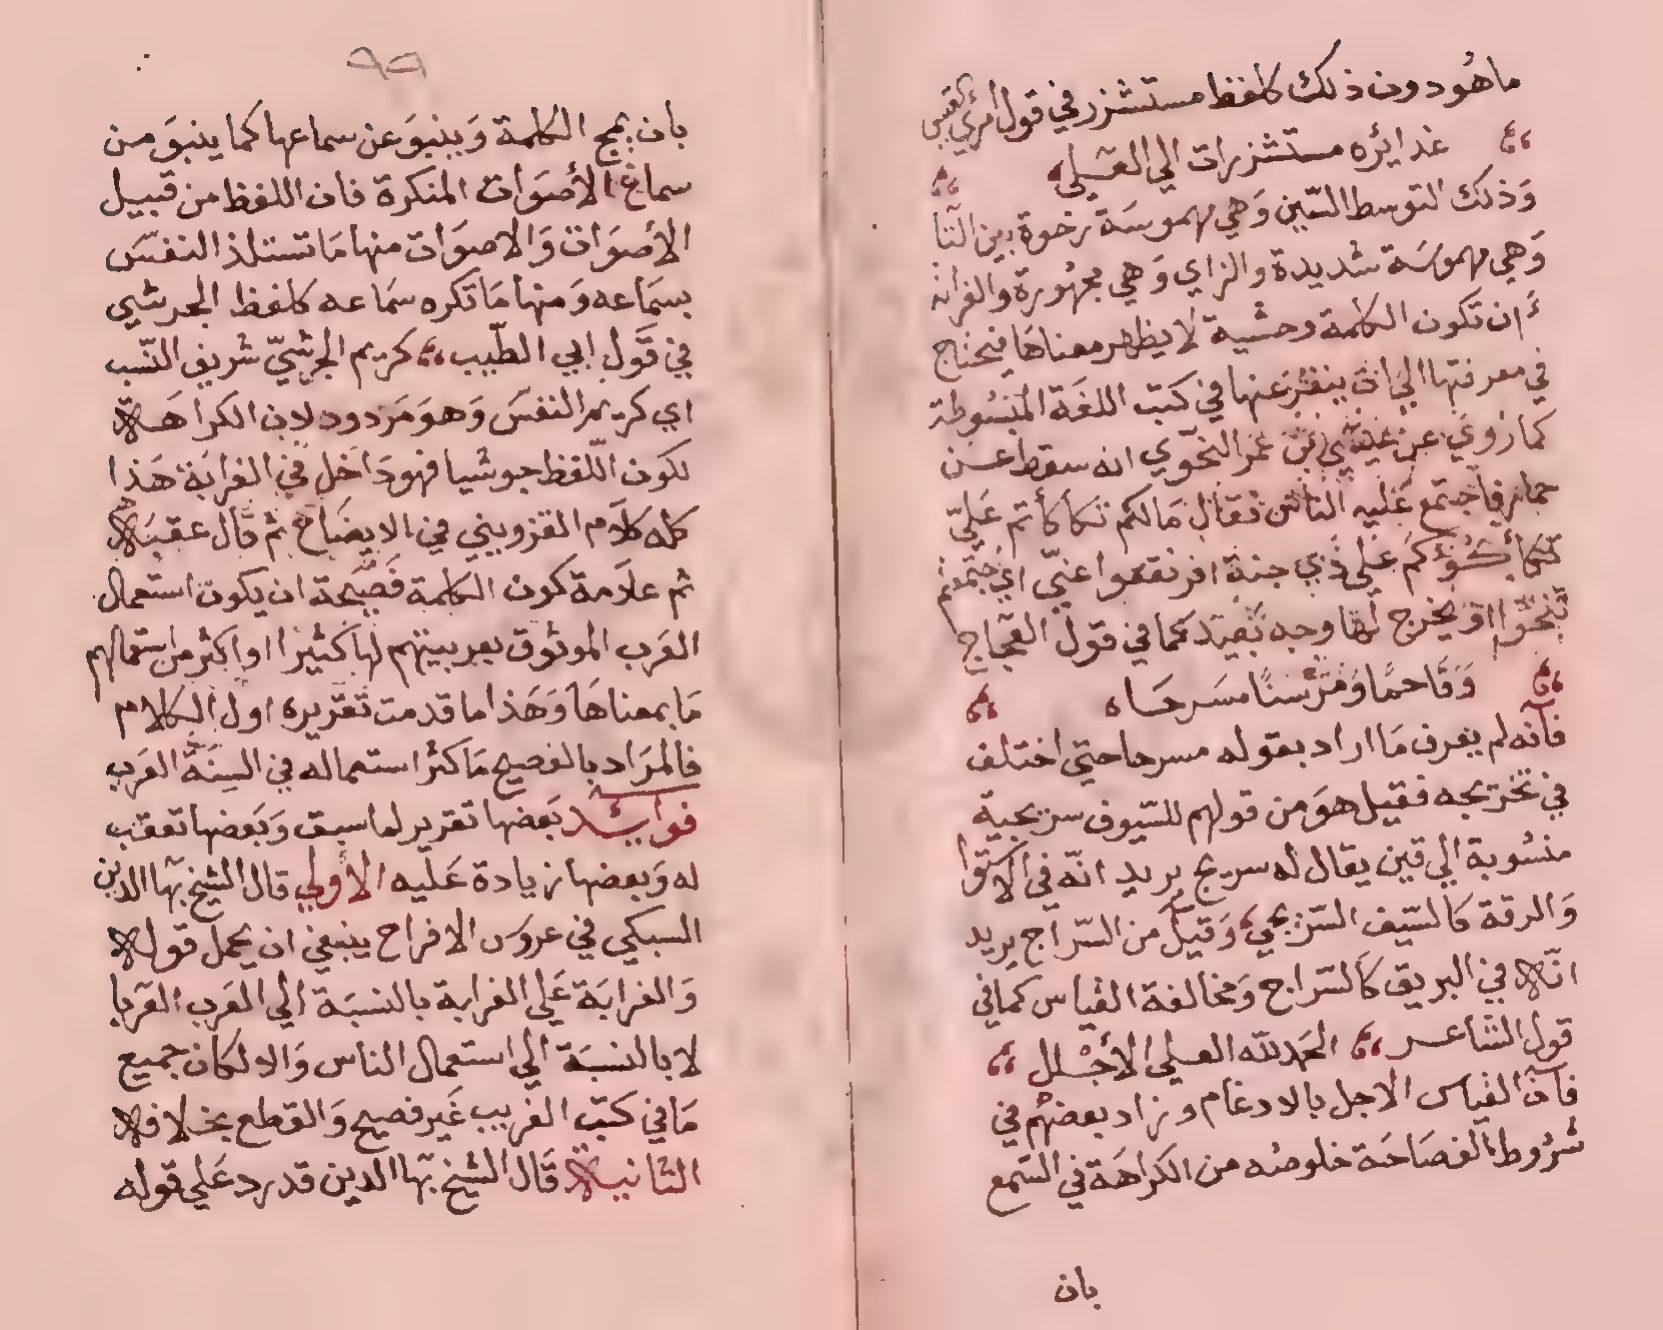 ما هُو دون ذلك كلفظ مستشزر في قول امرئ القيس
غدائره مستشزرات الي العلي
وَذلك لتوسط الشين وَهي مهموسَة رخوة بين التا
وَهي مهموسَة شديدة والزاي وَهي مجهُورة والغرابة
أن تكون الكلمة وحشية لا يظهر معناهَا فيحتاج
في معرفتها الي ان ينقر عنها في كتب اللغَة المبسُوطة
كما روي عن عيسَي بن عمَر النحوي انه سقط عن
حمار فاجتمع عَليه الناس فقال مَا لكم تكأكأتم عَليّ
تكأكُؤكم عَلي ذي جنة افرنقعوا عنّي اي اجتمعتم
تنحّوا او يخرج لهَا وجه بَعيد كما في قول العجاج
وَفاحمًا وَمَرْسنًا مسَرجَا
فانه لم يعرف مَا اراد بقوله مسرجا حتي اختلف
في تخريجه فقيل هوَ من قولهم للسّيوف سريجية
منسُوبة الي قين يقال له سريج يريد انّه في الاستوا
وَالدقة كالسّيف السّريجي وَقيل من السّراج يريد
انّه في البريق كَالسّراج وَمخالفة القياس كما في
قول الشاعر الحمد لله العلي الأجْلل
فان القياس الاجل بالادغام وزاد بعضهُم في
شرُوط الفصَاحَة خلوصُه من الكراهَة في السّمع
بان
٩٩
بان يمج الكلمة وَينبوَ عن سماعها كما ينبوَ من
سماع الأصوَات المنكرة فان اللفظ من قبيل
الأصوَات وَالاصوَات منها مَا تستلذ النفسَ
بسمَاعه وَمنها مَا تكره سمَاعه كلفظ الجرشي
في قَول ابي الطيب كريم الجرشيّ شريف النّسب
اي كريم النفسَ وَهوَ مَردود لان الكراهَة
لكون اللّفظ حوشيا فهو دَاخل في الغرابَة هَذا
كله كلاَم القزويني في الايضَاح ثم قَال عقبَه
ثم علاَمة كون الكلمة فَصيحَة ان يكون استعمال
العَرب الموثوق بعربيتهم لها كثيرا او اكثر من استعمالهم
مَا بمعناهَا وَهَذا ما قدمت تَقريره اول الكلام
فالمرَاد بالفصيح مَا كثر استعماله في السِنَة العَرب
فوايد بَعضها تقرير لما سبق وَبَعضها تعقب
له وَبعضها زيادة عَليه الأولي قال الشيخ بهَا الدين
السبكي في عروس الافراح ينبغي ان يحمل قوله
وَالغرابَة عَلي الغرابة بالنسبَة الي العَرب العَربا
لا بالنسبَة الي استعمال الناس وَالا لكان جميع
مَا في كتب الغريب غَير فصيح وَالقطع بخلافه
الثانية قَال الشيخ بهَا الدين قد يرد عَلي قوله